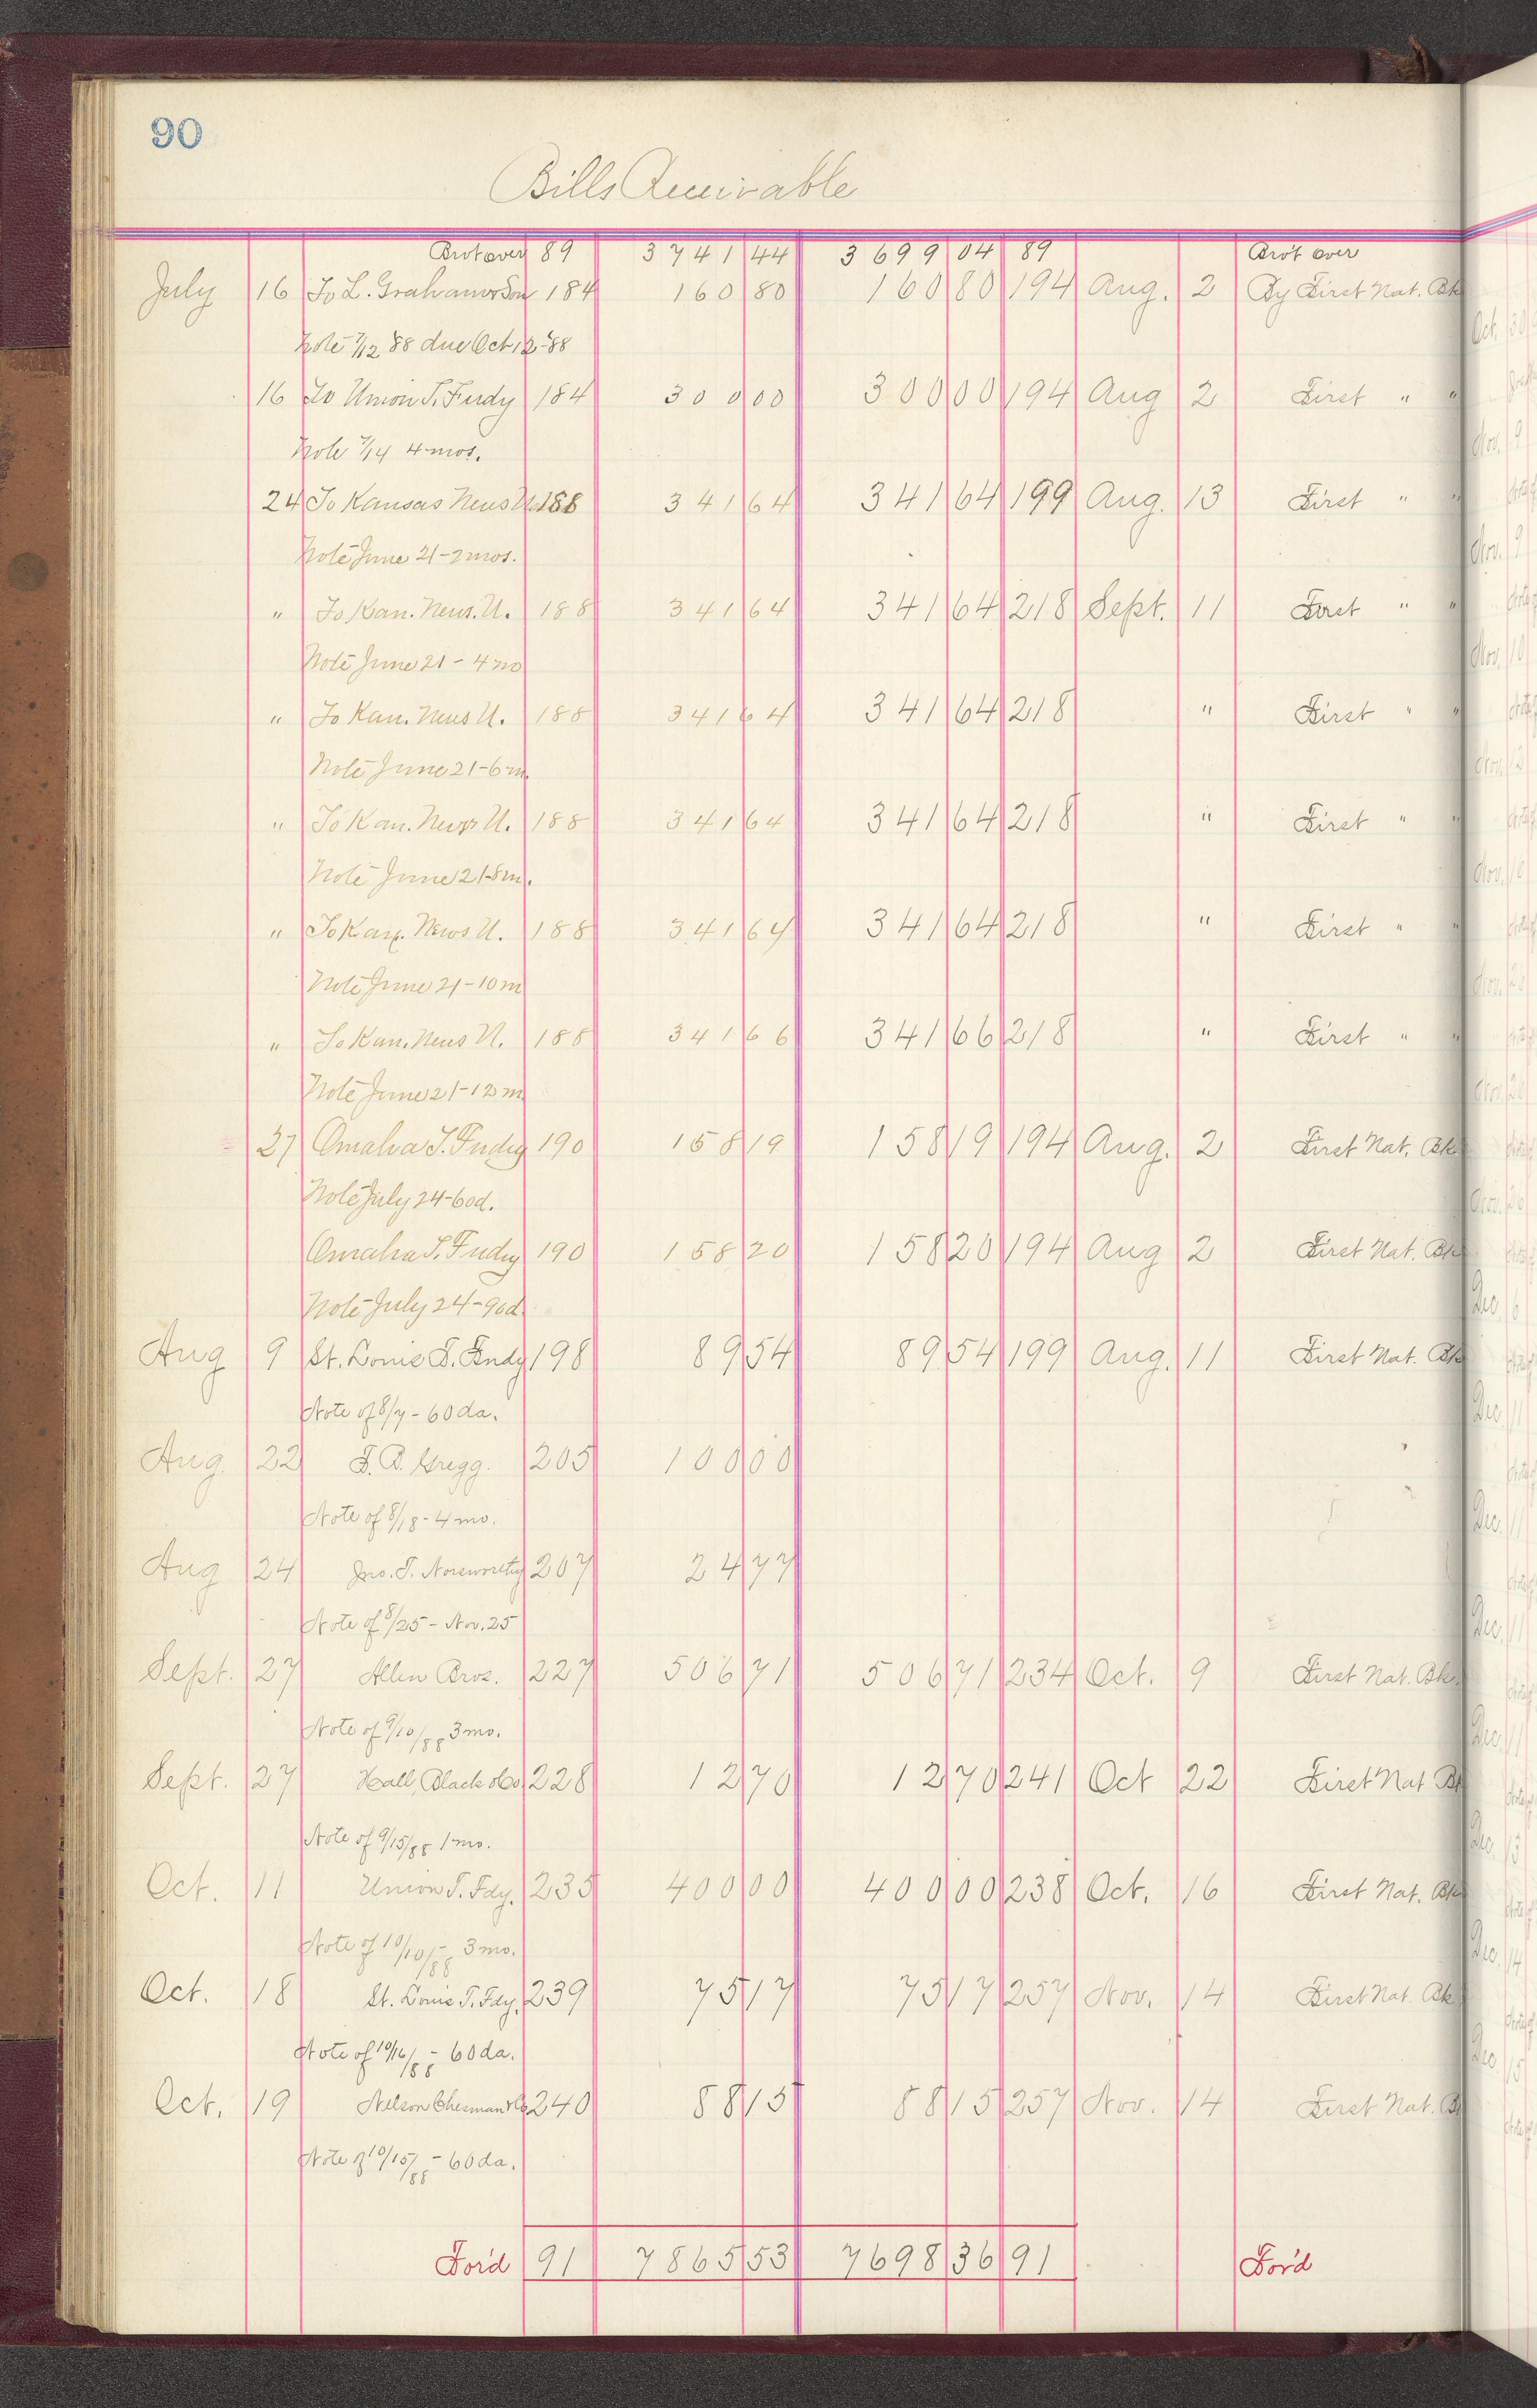 90
Bills Receivable
Brot over 89 3741 44 3699 04 89 Brot over
July 16 To L. Graham & Son 184 160 80 160 80 194 Aug. 2 By First Nat. Bk
Note 7/12 '88 due Oct 12-'88
16 To Union T. Fndy 184 300 00 300 00 194 Aug 2 First " "
Note 7/14 4 mos.
24 To Kansas News U. 188 341 64 341 64 199 Aug. 13 First " "
Note June 21-2 mos.
" To Kan. News. U. 188 341 64 341 64 218 Sept. 11 First " "
Note June 21-4 mo
" To Kan. News U. 188 341 64 341 64 218 " First " "
Note June 21-6 m.
" To Kan. News U. 188 341 64 341 64 218 " First " "
Note June 21-8m.
" To Kan. News U. 188 341 64 341 64 218 " First " "
Note June 21-10 m
" To Kan. News U. 188 341 66 341 66 218 " First " "
Note June 21-12 m
27 Omaha T. Fndry 190 158 19 158 19 194 Aug. 2 First Nat. Bk
Note July 24-60d.
Omaha T. Fndry 190 158 20 158 20 194 Aug 2 First Nat. Bk
Note July 24-90d
Aug 9 St. Louis T. Fndy 198 89 54 89 54 199 Aug. 11 First Nat. Bk
Note of 8/7 - 60 da.
Aug. 22 Gregg. 205 100 00
Note of 8/18 - 4 mo.
Aug 24 Jno. T. Norsworthy 207 24 77
Note of 8/25 - Nov. 25
Sept. 27 Allen Bros. 227 506 71 506 71 234 Oct. 9 First Nat. Bk.
Note of 9/10/88 3 mo.
Sept. 27 Hall, Black & Co 228 12 70 12 70 241 Oct 22 First Nat Bk
Note of 9/15/88 1 mo.
Oct. 11 Union T. Fdy. 235 400 00 400 00 238 Oct. 16 First Nat. Bk
Note of 10/10/88 - 3 mo.
Oct. 18 St. Louis T. Fdy. 239 75 17 75 17 257 Nov. 14 First Nat. Bk
Note of 10/16/88 - 60 da.
Oct. 19 Nelson Chesman & Co 240 88 15 88 15 257 Nov. 14 First Nat. B
Note of 10/15/88 - 60 da.
For'd 91 7865 53 7698 36 91 For'd